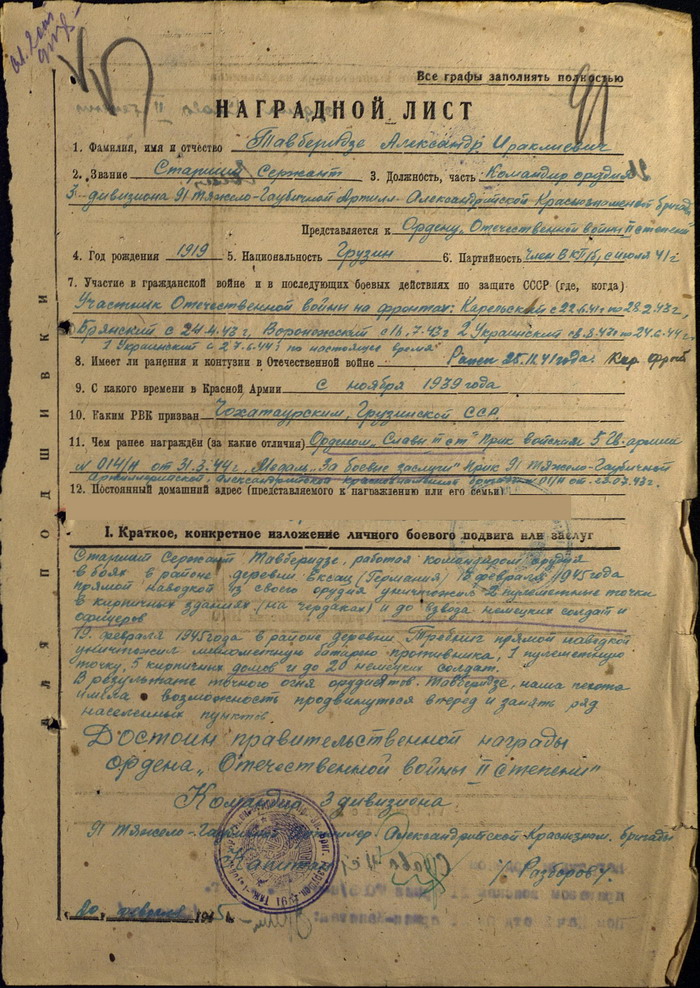 Все графы заполнять полностью
91
НАГРАДНОЙ ЛИСТ
1. Фамилия, имя и отчество Тавберидзе Александр Ираклиевич
2. Звание Старший Сержант 3. Должность, часть Командир орудия
3 дивизиона 91 Тяжело-Гаубичной Артилл-Александрийской Краснознаменой бригад
Представляется к Ордену „Отечественной войны II степени"
4. Год рождения 1919 5. Национальность Грузин 6. Партийность Член ВКП(б) с июля 41г
7. Участие в гражданской войне и в последующих боевых действиях по защите СССР (где, когда)
Участник Отечественной войны на фронтах: Карельский с 22.6.41г по 28.2.43г,
Брянский с 24.4.43г, Воронежский с 16.7.43г 2 Украинский св 8.43г по 24.6.44г
1 Украинский с 27.6.44г по настоящее время
8. Имеет ли ранения и контузии в Отечественной войне Ранен 25.12.41 года. Кар. фронт
9. С какого времени в Красной Армии С ноября 1939 года
10. Каким РВК призван Чохатаурским, Грузинской ССР
11. Чем ранее награждён (за какие отличия) Орденом „Славы III ст" Прик войскам 5 Гв. армии
№ 014/н от 31.3.44г, Медаль „За боевые заслуги" Прик 91 Тяжело-Гаубичной
Артиллерийской, Александрийской Краснознаменной бригады 011/н от 23.07.43г.
12. Постоянный домашний адрес (представляемого к награждению или его семьи)
I. Краткое, конкретное изложение личного боевого подвига или заслуг
Старший Сержант Тавберидзе, работая командиром орудия
в боях в районе деревни Ексау (Германия) 18 февраля 1945 года
прямой наводкой из своего орудия уничтожил 2 пулеметные точки
в кирпичных зданиях (на чердаках) и до взвода немецких солдат и
офицеров
19. февраля 1945 года в районе деревни Требниг прямой наводкой
уничтожил минометную батарею противника, 1 пулеметную
точку, 5 кирпичных домов и до 20 немецких солдат.
В результате точного огня орудия тов. Тавберидзе, наша пехота
имела возможность продвинуться вперед и занять ряд
населенных пунктов.
Достоин правительственной награды
ордена „Отечественной войны II степени"
Командир 3 дивизиона
91 Тяжело-Гаубичной Артиллер. Александрийской Краснознам. бригады
Капитан / Разборов /
20 февраля 1945г.
ДЛЯ ПОДШИВКИ